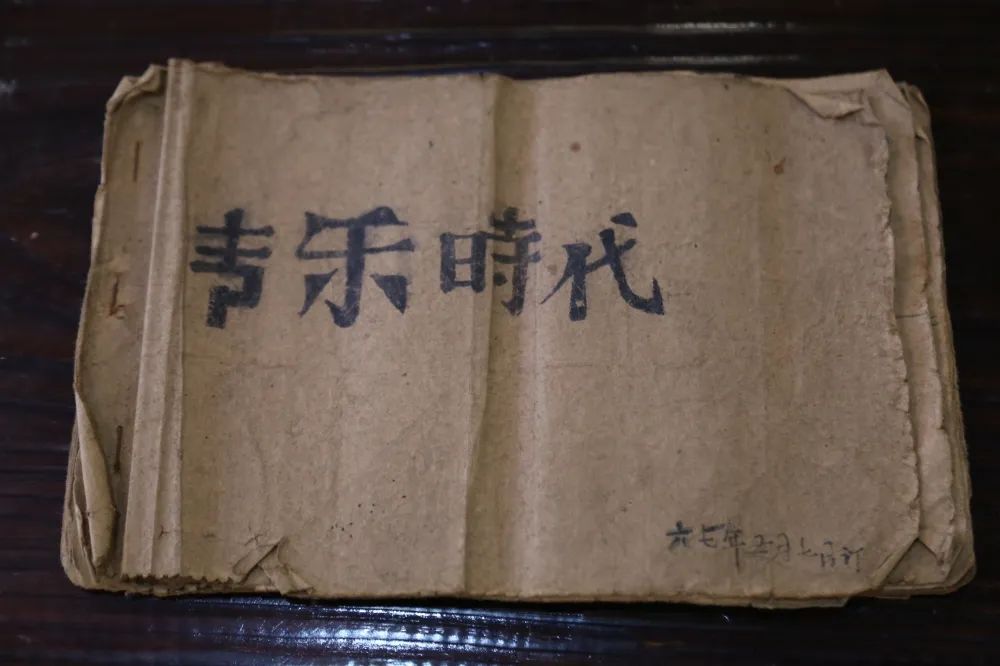 声乐時代
六七年五月七日订